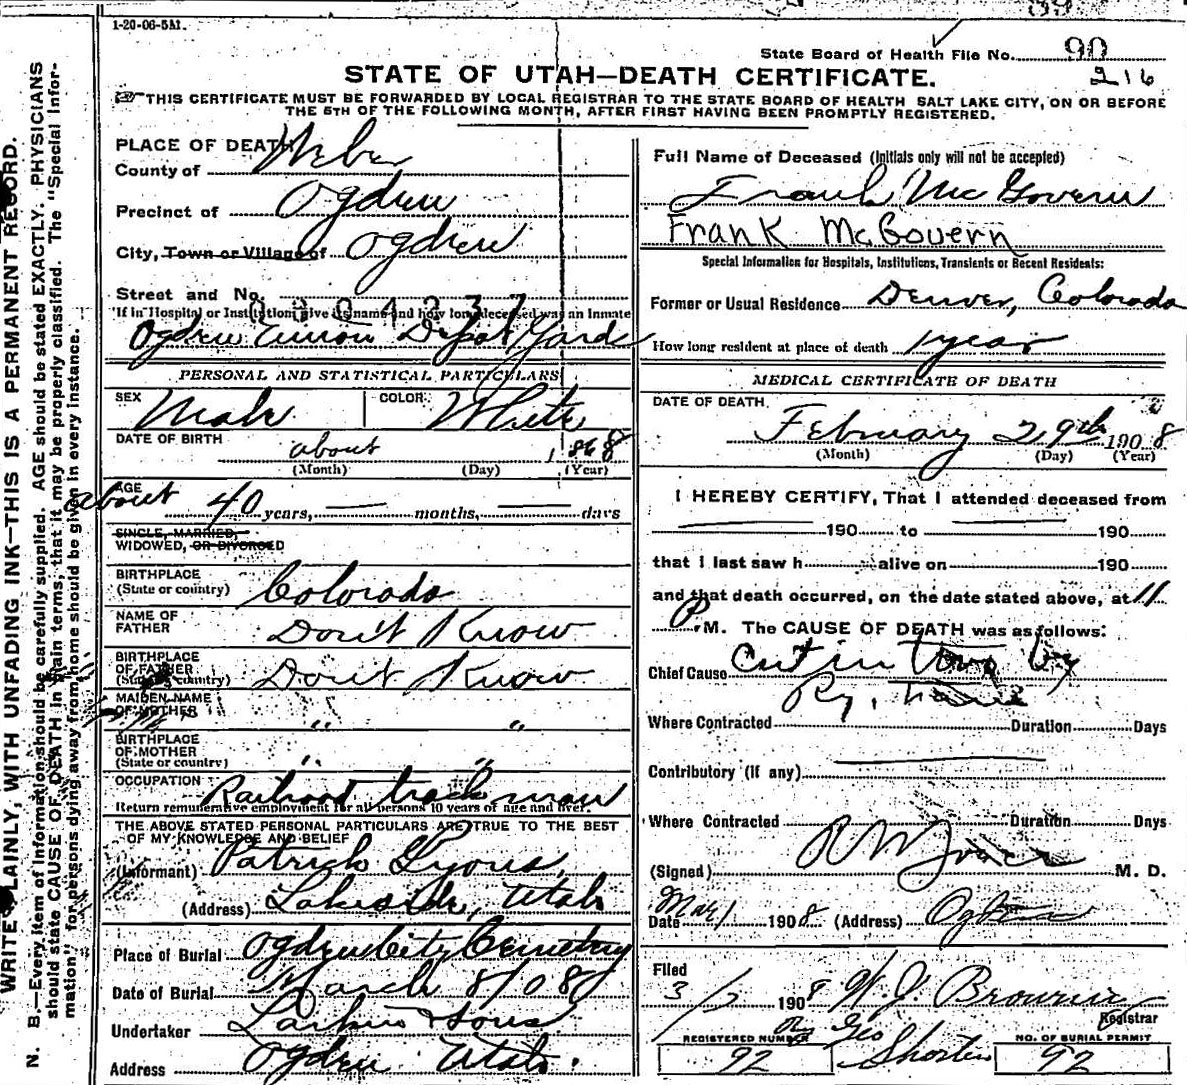 1-20-06-5M.
State Board of Health File No. 90
216
STATE OF UTAH—DEATH CERTIFICATE.
THIS CERTIFICATE MUST BE FORWARDED BY LOCAL REGISTRAR TO THE STATE BOARD OF HEALTH SALT LAKE CITY, ON OR BEFORE
THE 5TH OF THE FOLLOWING MONTH, AFTER FIRST HAVING BEEN PROMPTLY REGISTERED.
WRITE PLAINLY, WITH UNFADING INK—THIS IS A PERMANENT RECORD.
N. B.—Every item of information should be carefully supplied. AGE should be stated EXACTLY. PHYSICIANS
should state CAUSE OF DEATH in plain terms, that it may be properly classified. The "Special Infor-
mation" for persons dying away from home should be given in every instance.
PLACE OF DEATH
County of Weber
Precinct of Ogden
City, Town or Village of Ogden
Street and No.
If in Hospital or Institution, give its name and how long deceased was an Inmate
Ogden Union Depot Yard
PERSONAL AND STATISTICAL PARTICULARS
SEX Male COLOR White
DATE OF BIRTH
about 1868
(Month) (Day) (Year)
AGE
about 40 years, — months, — days
SINGLE, MARRIED,
WIDOWED, OR DIVORCED
BIRTHPLACE
(State or country) Colorado
NAME OF
FATHER Don't Know
BIRTHPLACE
OF FATHER
(State or country) Don't Know
MAIDEN NAME
OF MOTHER " "
BIRTHPLACE
OF MOTHER
(State or country) " "
OCCUPATION Railroad trackman
Return remunerative employment for all persons 10 years of age and over.
THE ABOVE STATED PERSONAL PARTICULARS ARE TRUE TO THE BEST
OF MY KNOWLEDGE AND BELIEF
(Informant) Patrick Lyons,
(Address) Lakeside, Utah
Place of Burial Ogden City Cemetery
Date of Burial March 8/08
Undertaker Larkin & Sons
Address Ogden Utah.
Full Name of Deceased (Initials only will not be accepted)
Frank McGovern
Frank McGovern
Special Information for Hospitals, Institutions, Transients or Recent Residents:
Former or Usual Residence Denver, Colorado
How long resident at place of death 1 year
MEDICAL CERTIFICATE OF DEATH
DATE OF DEATH
February 29th 1908
(Month) (Day) (Year)
I HEREBY CERTIFY, That I attended deceased from
190 to 190
that I last saw h alive on 190
and that death occurred, on the date stated above, at 11
P. M. The CAUSE OF DEATH was as follows:
Chief Cause Cut in two by
Ry.
Where Contracted Duration Days
Contributory (if any)
Where Contracted Duration Days
(Signed) M. D.
Date Mar 1 1908 (Address) Ogden
Filed
3/7 1908 W. J. Browning
Registrar
By Geo Shorten
REGISTERED NUMBER 92
NO. OF BURIAL PERMIT 92